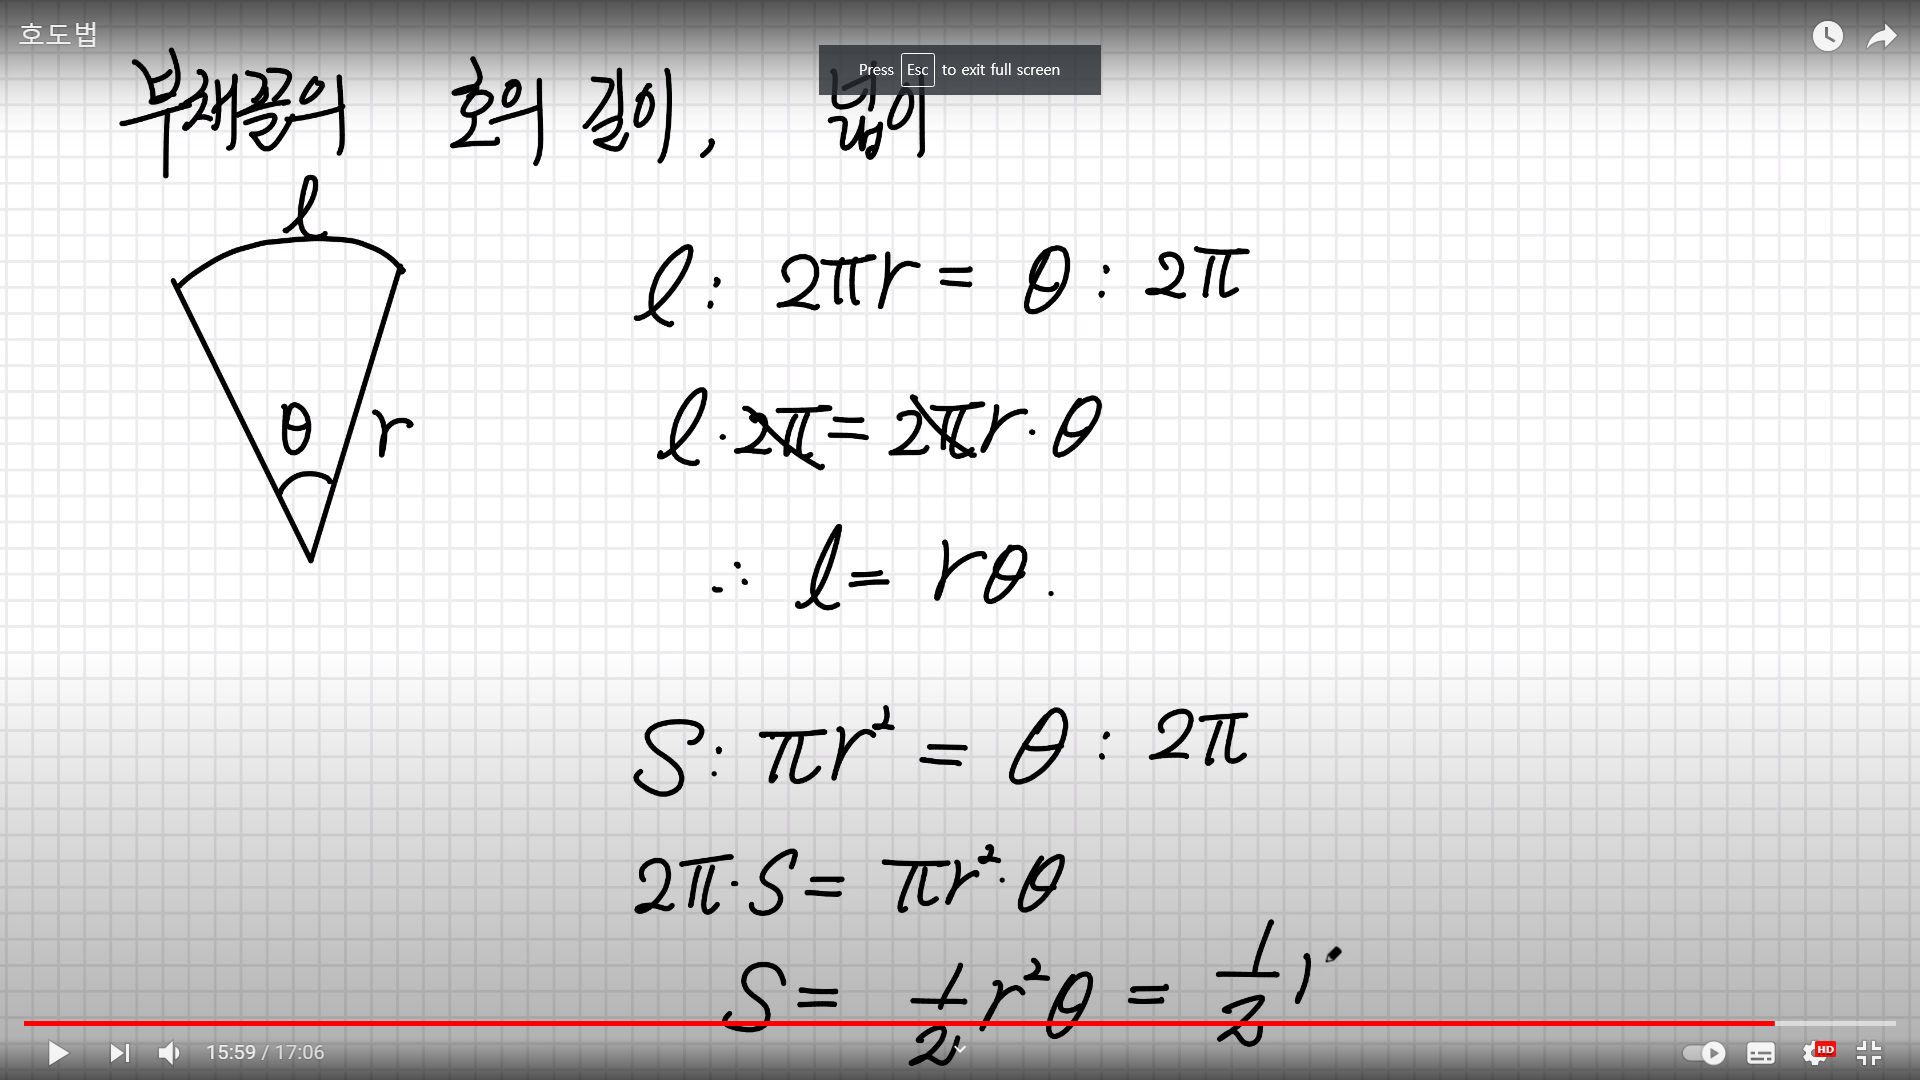 호도법
Press Esc to exit full screen
부채꼴의 호의 길이, 넓이
l
l : 2πr = θ : 2π
l · 2π = 2πr · θ
θ r
∴ l = rθ.
S : πr² = θ : 2π
2π · S = πr² · θ
S = 1/2 r²θ = 1/2 r
15:59 / 17:06
HD